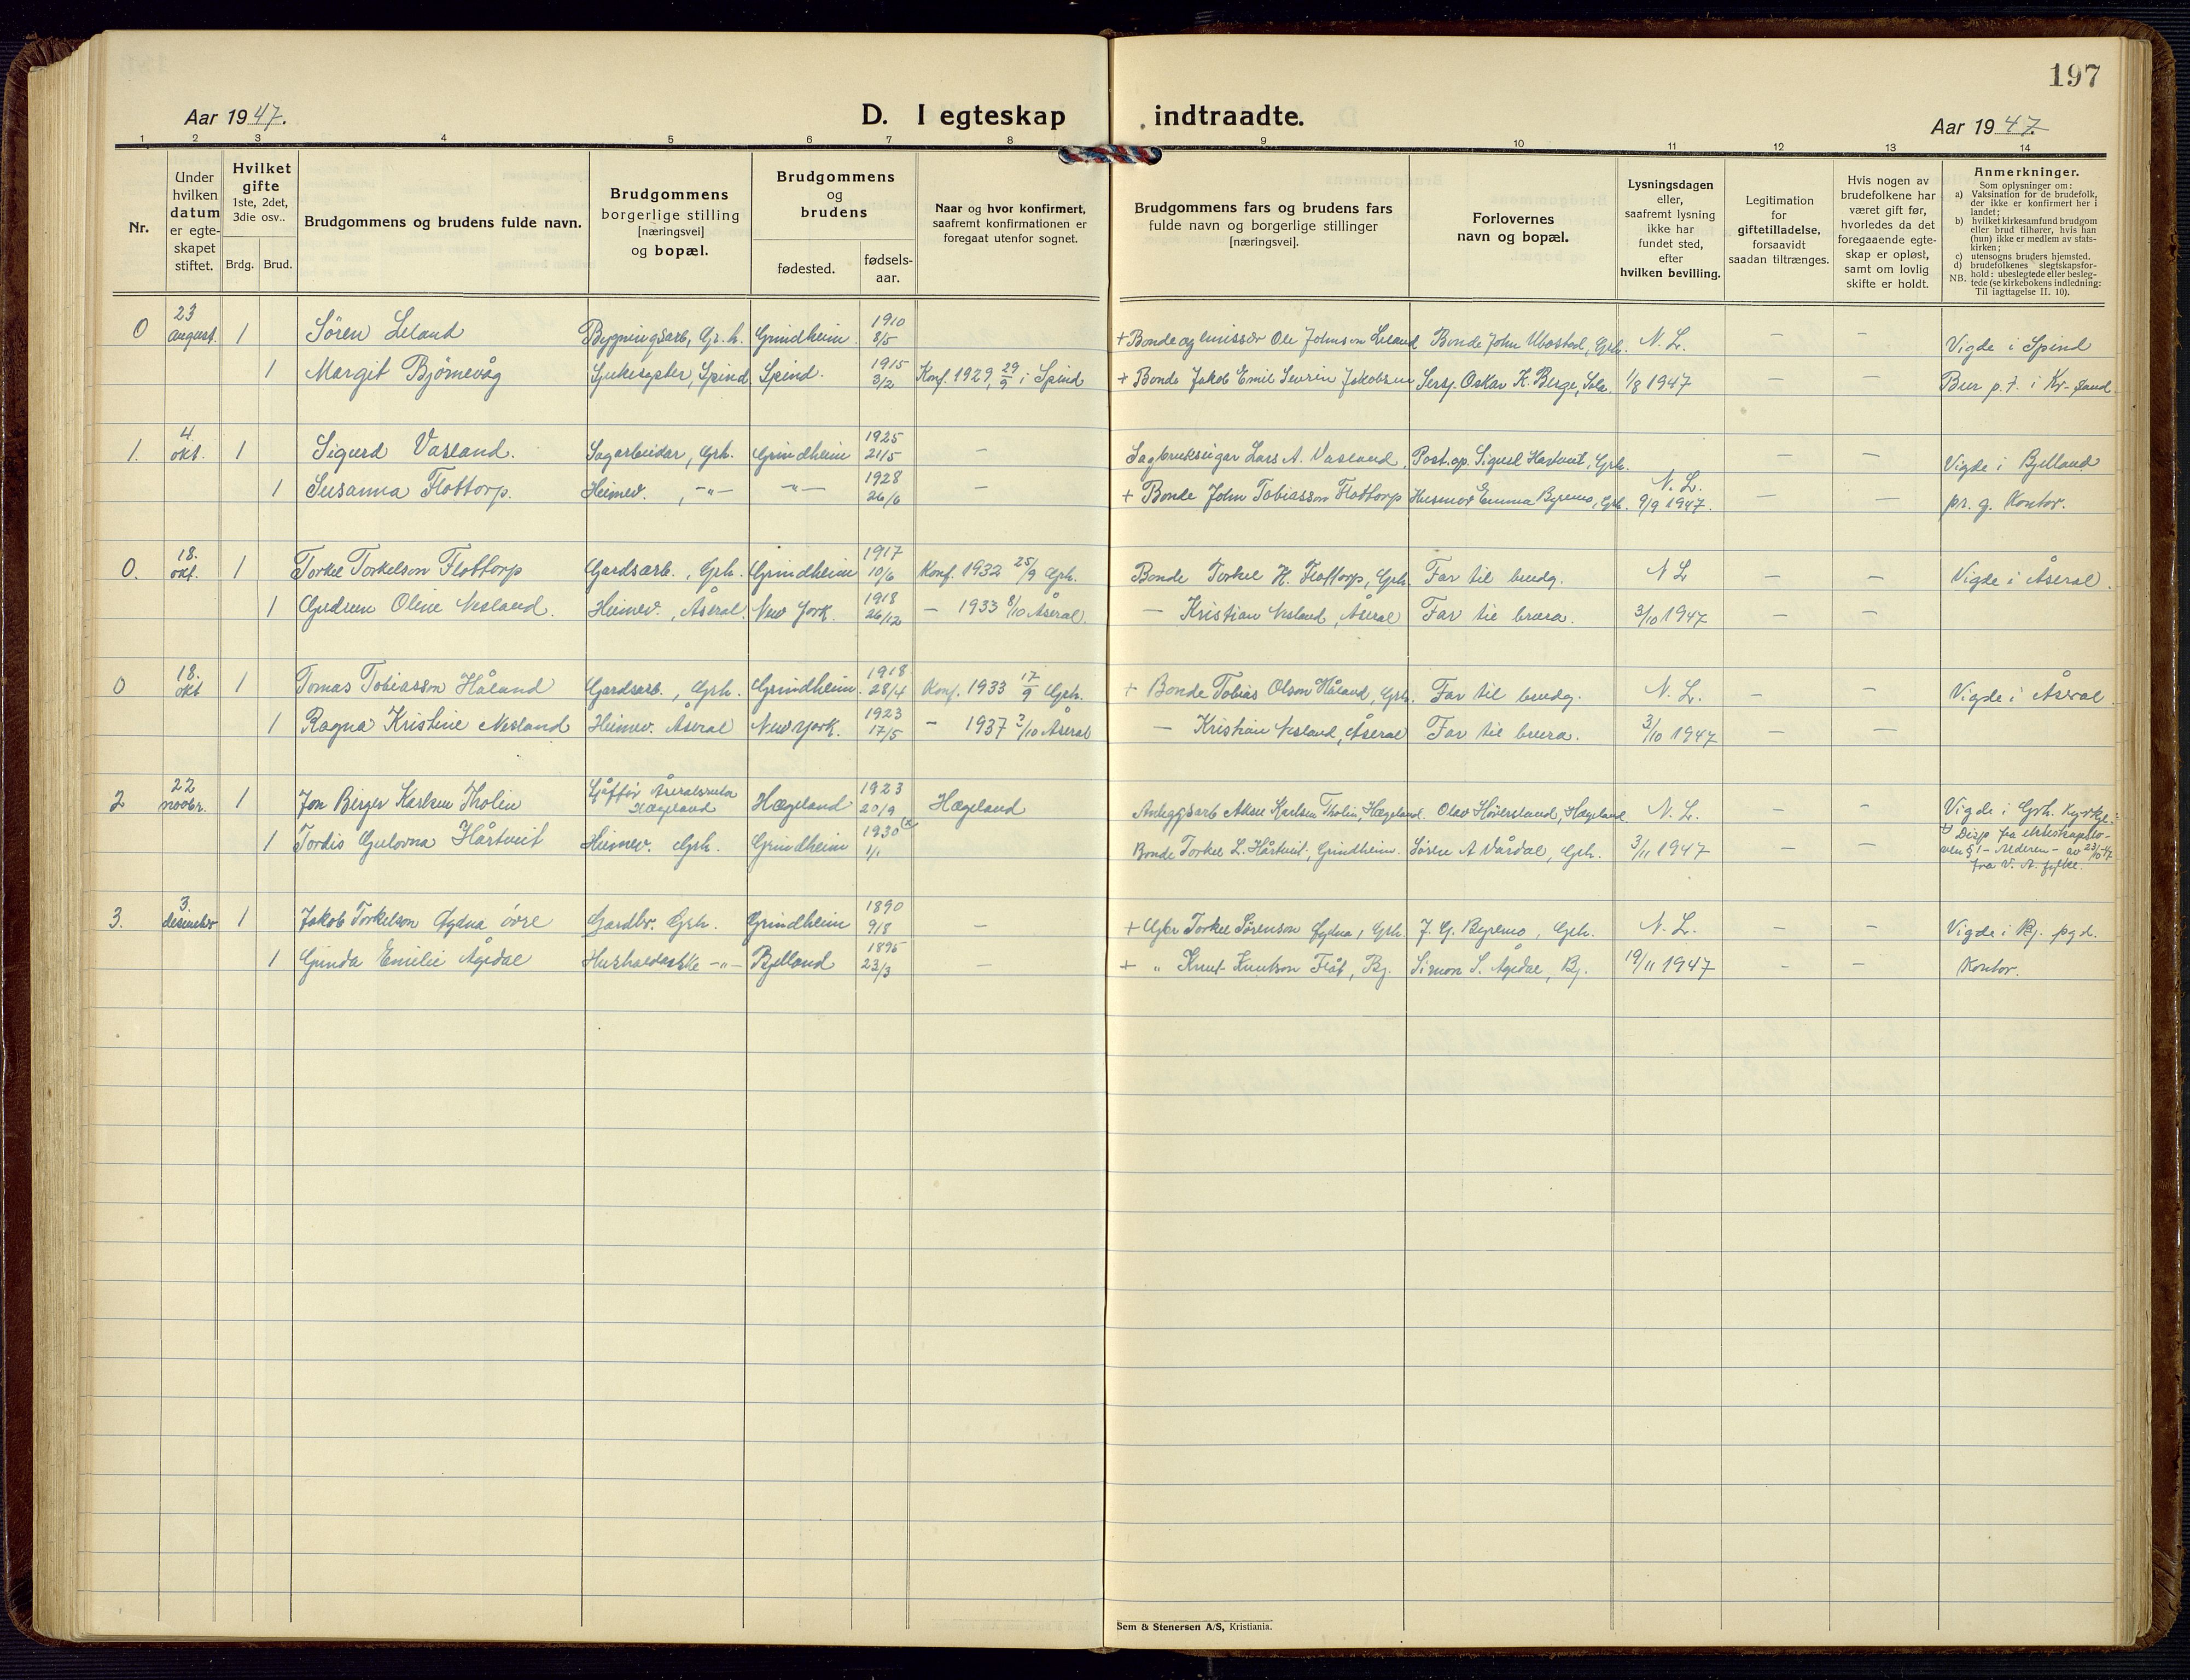 197
Aar 1947.
D. I egteskap indtraadte.
Aar 1947.
1 2 3 4 5 6 7 8 9 10 11 12 13 14
Nr.
Under hvilken datum er egte-skapet stiftet.
Hvilket gifte 1ste, 2det, 3die osv..
Brdg. Brud.
Brudgommens og brudens fulde navn.
Brudgommens borgerlige stilling [næringsvei] og bopæl.
Brudgommens og brudens
fødested.
fødsels-aar.
Naar og hvor konfirmert, saafremt konfirmationen er foregaat utenfor sognet.
Brudgommens fars og brudens fars fulde navn og borgerlige stillinger [næringsvei].
Forlovernes navn og bopæl.
Lysningsdagen eller, saafremt lysning ikke har fundet sted, efter hvilken bevilling.
Legitimation for giftetilladelse, forsaavidt saadan tiltrænges.
Hvis nogen av brudefolkene har været gift før, hvorledes da det foregaaende egte-skap er opløst, samt om lovlig skifte er holdt.
Anmerkninger.
Som oplysninger om:
a) Vaksination for de brudefolk, der ikke er konfirmert her i landet;
b) hvilket kirkesamfund brudgom eller brud tilhører, hvis han (hun) ikke er medlem av stats-kirken;
c) utensogns bruders hjemsted.
d) brudefolkenes slegtskapsfor-hold: ubeslegtede eller besleg-tede (se kirkebokens indledning: Til iagttagelse II. 10).
NB.
0 23 august. 1 Søren Leland Bygningsarb, Gr.h. Grindheim 1910 8/5 + Bonde og emissær Ole Johnson Leland Bonde John Ubostad, Grh. N. L. – – Vigde i Spind
1 Margit Bjørnevåg Sjukesyster, Spind Spind. 1915 3/2 Konf. 1929 29/9 i Spind + Bonde Jakob Emil Sevrin Jakobsen Sersj. Oskar K. Berge, Sola. 1/8 1947 – – Bur p.t. i Kr-sand
1. 4 okt. 1 Sigurd Vasland. Sagarbeidar, Grh. Grindheim 1925 21/5 – Sagbrukseigar Lars A. Vasland, Post.op. Sigurd Hårtveit, Grh. – – Vigde i Bjelland
1 Susanna Flottorp. Heimev. , -"- -"- 1928 26/6 – + Bonde John Tobiasson Flottorp Husmor Emma Byremo, Grh. N. L. 9/9 1947. – – pr. g. Kontor.
0. 18. okt. 1 Torkel Torkelson Flottorp Gardsarb. , Grh. Grindheim 1917 10/6 Konf. 1932 25/9 Grh. Bonde Torkel K. Flottorp, Grh Far til brudg. N L – – Vigde i Åseral.
1 Gudrun Oline Nesland. Heimev. , Åseral. New York. 1918 26/12 – 1933 8/10 Åseral. – Kristian Nesland, Åseral Far til brura. 3/10 1947 – –
0 18. okt 1 Tomas Tobiasson Håland Gardsarb. , Grh. Grindheim. 1918 28/4 Konf. 1933 17/9 Grh. + Bonde Tobias Olson Håland, Grh. Far til brudg. N. L. – – Vigde i Åseral.
1 Ragna Kristine Nesland Heimev. Åseral New York. 1923 17/5 – 1937 3/10 Åseral – Kristian Nesland, Åseral Far til brura. 3/10 1947 – –
2 22 novbr. 1 Jon Birger Karlsen Tholin Sjåfør Åseralsruta Hægeland Hægeland 1923 20/9 Hægeland Anleggsarb Aksel Karlsen Tholin, Hægeland. Olav Høiersland, Hægeland N. L. – – Vigde i Grh. kyrkje.
1 Tordis Gulovna Hårtveit Heimev. Grh. Grindheim 1930 (x 1/1 Bonde Torkel L. Hårtveit, Grindheim. Sørine A Vårdal, Grh. 3/11 1947 – – x) Disp fra ekteskapslo-ven § 1 - Alderen - av 23/10-47 fra V. A. fylke.
3. 3. desember 1 Jakob Torkelson Øydna øvre Gardbr. Grh. Grindheim 1890 9/8 – + Gbr Torkel Sørenson Øydna, Grh. J. G. Byremo, Grh. N. L. – – Vigde i Bj. pgd.
1 Gunda Emilie Ågedal Hushaldarske -"- Bjelland 1895 23/3 – + " Knut Knutson Flåt, Bj. Simon S. Ågedal, Bj. 19/11 1947 – – Kontor.
Sem & Stenersen A/S, Kristiania.